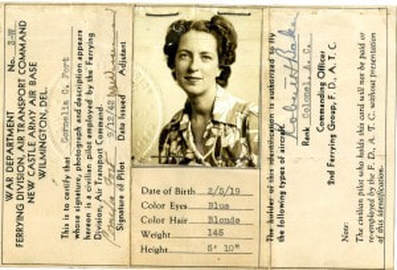 WAR DEPARTMENT No. 3-W
FERRYING DIVISION, AIR TRANSPORT COMMAND
NEW CASTLE ARMY AIR BASE
WILMINGTON, DEL.
This is to certify that Cornelia C. Fort
whose signature, photograph and description appears
hereon is a civilian pilot employed by the Ferrying
Division, Air Transport Command.
Cornelia Fort 9/12/42
Signature of Pilot Date Issued Adjutant
Date of Birth 2/5/19
Color Eyes Blue
Color Hair Blonde
Weight 145
Height 5' 10"
The holder of this identification is authorized to fly
the following types of aircraft.
Rank Colonel
Commanding Officer
2nd Ferrying Group, F. D., A. T. C.
Note:
The civilian pilot who holds this card will not be paid or
re-employed by the F. D., A. T. C. without presentation
of this identification.